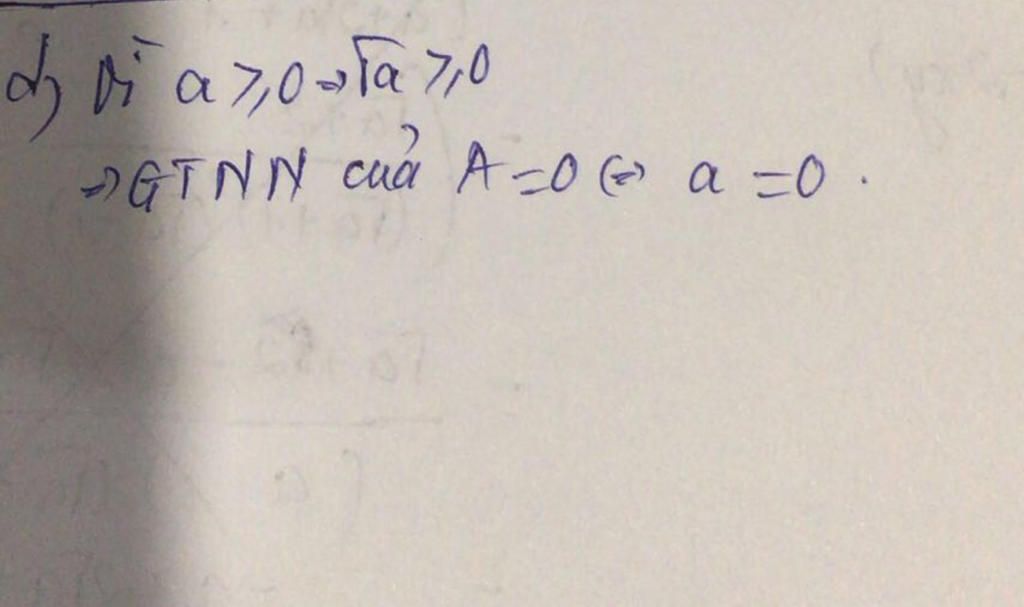 d) Vì a ≥ 0 => √a ≥ 0
=> GTNN của A = 0 <=> a = 0 .